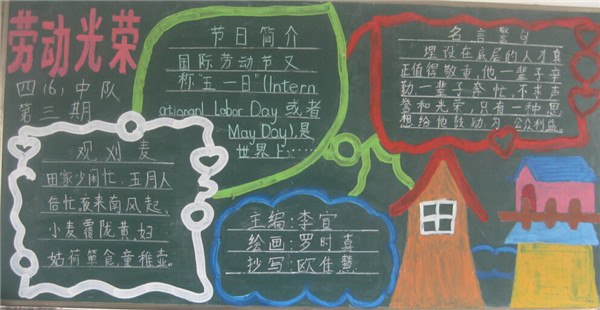 劳动光荣
四(6)中队
第三期
观刈麦
田家少闲忙,五月人
倍忙夜来南风起,
小麦覆陇黄,妇
姑荷箪食童稚壶。
节日简介
国际劳动节又
称“五一日”(Intern
ational Labor Day 或者
May Day),是
世界上……
主编:李宣
绘画:罗时真
抄写:欧佳慧
名言警句
埋没在底层的人才真
正值得敬重,他一辈子辛
勤一辈子奉忙,不求声
誉和光荣,只有一种思
想给他鼓动力:公众利益。